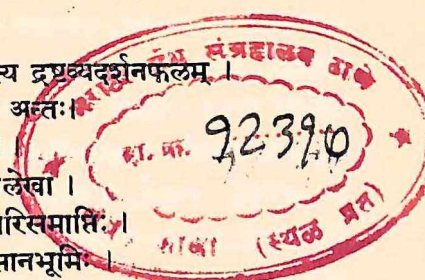 स्य द्रष्टव्यदर्शनफलम् ।
अन्तः।
।
लेखा ।
रिसमाप्तिः ।
सानभूमिः ।
ग्रंथ संग्रहालय ठाणे
दा. क्र. 92390
शाखा (स्थळ प्रत)